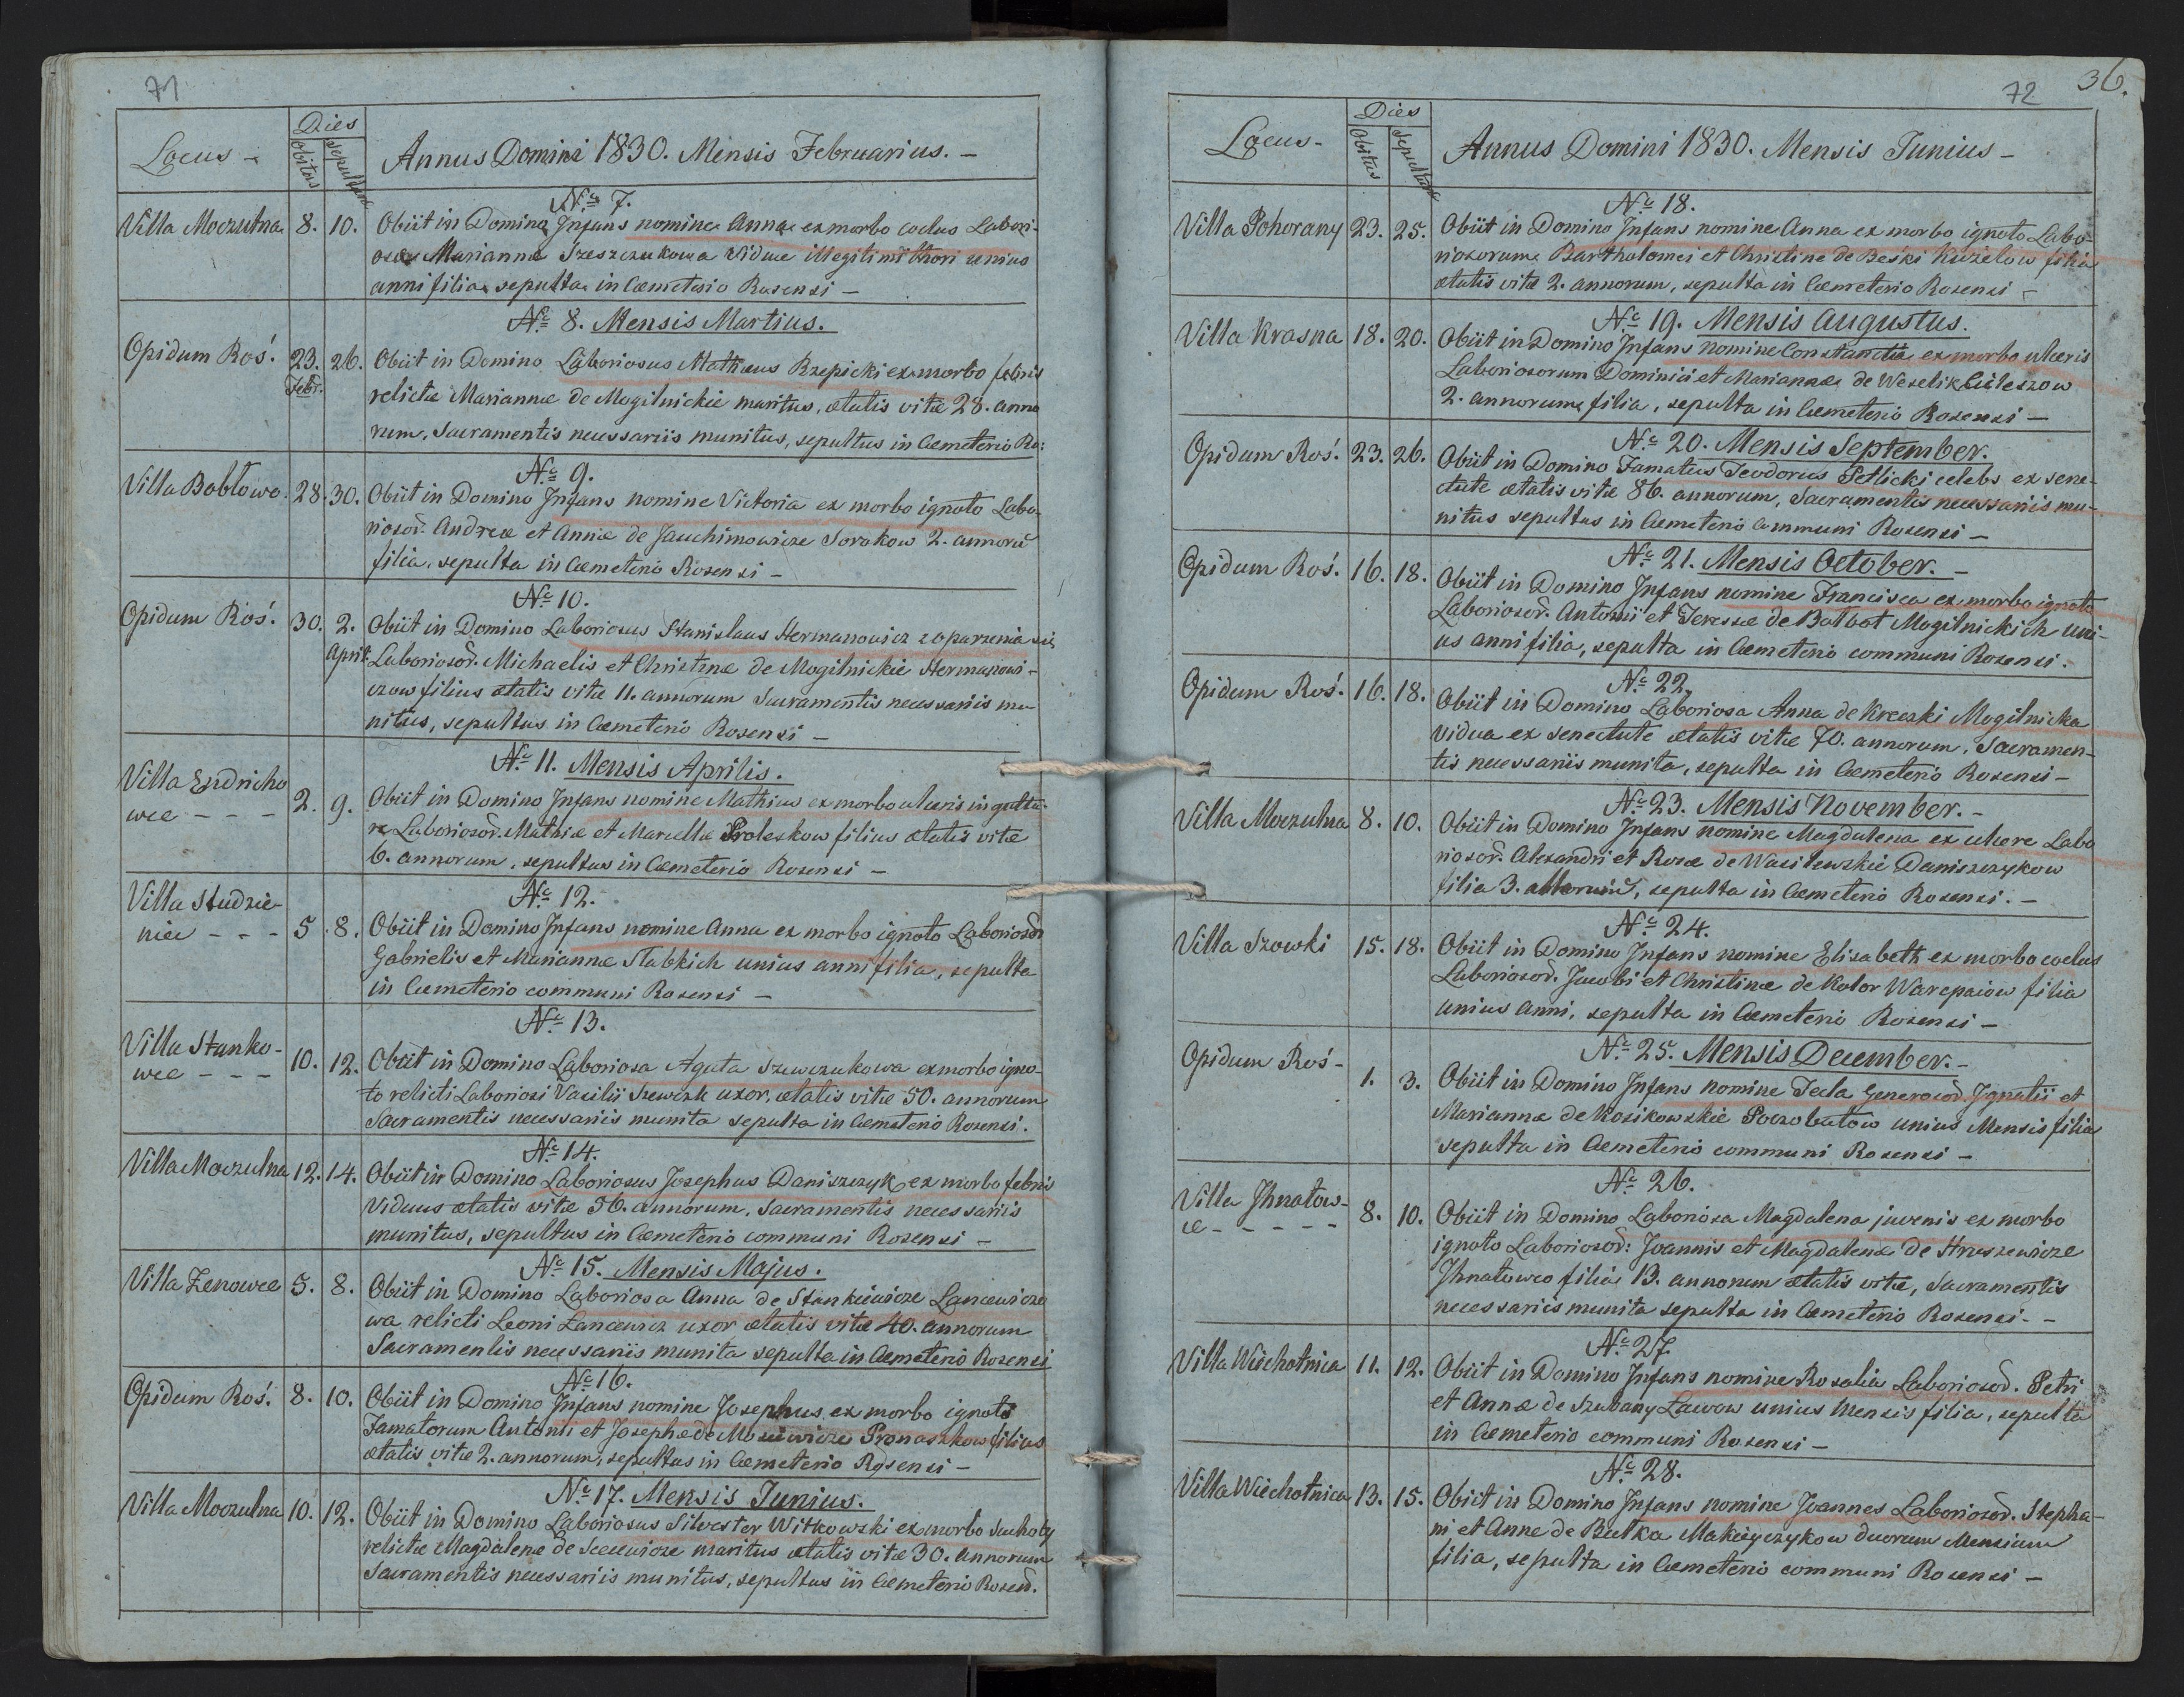 71
Locus -
Dies
Obitus
Sepulturæ
Annus Domini 1830. Mensis Februarius. -
Nº 7.
Villa Moczulna 8. 10. Obiit in Domino Infans nomine Anna ex morbo coclus Labori-
osæ Mariannæ Szeszczukowa Viduæ illegitimi thori unius
anni filia, sepulta in Cæmeterio Rosensi -
Nº 8. Mensis Martius.
Opidum Roś. 23. Febr. 26. Obiit in Domino Laboriosus Mathæus Rzepicki ex morbo febris
relictæ Mariannæ de Mogilnickie maritus, ætatis vitæ 28. anno
rum, Sacramentis necessariis munitus, sepultus in Cæmeterio Ro:
Nº 9.
Villa Bobłowo. 28. 30. Obiit in Domino Infans nomine Victoria ex morbo ignoto Labo-
riosor. Andreæ et Annæ de Jauchimowicze Sorokow 2. annorũ
filia, sepulta in Cæmeterio Rosensi -
Nº 10.
Opidum Roś. 30. 2. April Obiit in Domino Laboriosus Stanislaus Hermanowicz z oparzenia się
Laboriosor. Michaelis et Christinæ de Mogilnickie Hermanowi-
czow filius ætatis vitæ 11. annorum Sacramentis necessariis mu
nitus, sepultus in Cæmeterio Rosensi -
Nº 11. Mensis Aprilis.
Villa Endricho
wce - - - 2. 9. Obiit in Domino Infans nomine Mathias ex morbo ulceris in guttu-
re Laboriosor. Mathiæ et Marcellæ Proleskow filius ætatis vitæ
6. annorum, sepultus in Cæmeterio Rosensi -
Nº 12.
Villa Studzie-
niec - - - 5. 8. Obiit in Domino Infans nomine Anna ex morbo ignoto Laboriosor
Gabrielis et Mariannæ Słabkich unius anni filia, sepulta
in Cæmeterio communi Rosensi -
Nº 13.
Villa Stanko-
wce - - - 10. 12. Obiit in Domino Laboriosa Agata Szewczukowa ex morbo igno-
to relicti Laboriosi Vasilii Szewczuk uxor, ætatis vitæ 50. annorum
Sacramentis necessariis munita sepulta in Cæmeterio Rosensi.
Nº 14.
Villa Moczulna 12. 14. Obiit in Domino Laboriosus Josephus Daniszczyk ex morbo febris
Viduus ætatis vitæ 56. annorum, Sacramentis necessariis
munitus, sepultus in Cæmeterio communi Rosensi -
Nº 15. Mensis Majus.
Villa Zenowce 5. 8. Obiit in Domino Laboriosa Anna de Stankiewicze Lancewiczo
wa relicti Leoni Lancewicz uxor ætatis vitæ 40. annorum
Sacramentis necessariis munita sepulta in Cæmeterio Rosensi
Nº 16.
Opidum Roś. 8. 10. Obiit in Domino Infans nomine Josephus ex morbo ignoto
Famatorum Antonii et Josephæ de Pronaszkow filius
ætatis vitæ 2. annorum, sepultus in Cæmeterio Rosensi -
Nº 17. Mensis Junius.
Villa Moczulna 10. 12. Obiit in Domino Laboriosus Silvester Witkowski ex morbo suchoty
relictæ Magdalenæ de maritus ætatis vitæ 30. annorum
Sacramentis necessariis munitus, sepultus in Cæmeterio Rosens.
72 36.
Locus -
Dies
Obitus
Sepulturæ
Annus Domini 1830. Mensis Junius -
Nº 18.
Villa Pohorany 23. 25. Obiit in Domino Infans nomine Anna ex morbo ignoto Labo-
riosorum Bartholomei et Christine de Beśki Kuzelow filia
ætatis vitæ 2. annorum, sepulta in Cæmeterio Rosensi -
Nº 19. Mensis Augustus.
Villa Krasna 18. 20. Obiit in Domino Infans nomine Constantia ex morbo ulceris
Laboriosorum Dominici et Mariannæ de Weselik
2. annorum filia, sepulta in Cæmeterio Rosensi -
Nº 20. Mensis September.
Opidum Roś. 23. 26. Obiit in Domino Famatus Teodorus Petlicki celebs ex sene-
ctute ætatis vitæ 86. annorum, Sacramentis necessariis mu-
nitus sepultus in Cæmeterio communi Rosensi -
Nº 21. Mensis October. -
Opidum Roś. 16. 18. Obiit in Domino Infans nomine Francisca ex morbo ignoto
Laboriosor. Antonii et Teressæ de Botbot Mogilnickich uni-
us anni filia, sepulta in Cæmeterio communi Rosensi.
Nº 22.
Opidum Roś. 16. 18. Obiit in Domino Laboriosa Anna de Kreczki Mogilnicka
vidua ex senectute ætatis vitæ 70. annorum, Sacramen-
tis necessariis munita, sepulta in Cæmeterio Rosensi -
Nº 23. Mensis November. -
Villa Moczulna 8. 10. Obiit in Domino Infans nomine Magdalena ex ulcere Labo
riosor. Alexandri et Rosæ de Wasilewskie Daniszczykow
filia 3. annorum, sepulta in Cæmeterio Rosensi. -
Nº 24.
Villa Szowki 15. 18. Obiit in Domino Infans nomine Elisabeth ex morbo coclus
Laboriosor. Jacobi et Christinæ de Kotor Warepaiow filia
unius anni, sepulta in Cæmeterio Rosensi -
Nº 25. Mensis December. -
Opidum Roś - 1. 3. Obiit in Domino Infans nomine Tecla Generosor. Ignatii et
Mariannæ de Kosikowskie Poczobutow unius Mensis filia
sepulta in Cæmeterio communi Rosensi -
Nº 26.
Villa Ihnatow-
ce - - - - - 8. 10. Obiit in Domino Laboriosa Magdalena juvenis ex morbo
ignoto Laboriosor: Joannis et Magdalenæ de Hruszewicze
Ihnatowco filia 13. annorum ætatis vitæ, Sacramentis
necessariis munita sepulta in Cæmeterio Rosensi - -
Nº 27.
Villa Wiechotnica 11. 12. Obiit in Domino Infans nomine Rosalia Laboriosor. Petri
et Annæ de Szubany Ławow unius Mensis filia, sepulta
in Cæmeterio communi Rosensi -
Nº 28.
Villa Wiechotnica 13. 15. Obiit in Domino Infans nomine Joannes Laboriosor. Stepha-
ni et Anne de Butka Makeyczykow duorum Mensium
filia, sepulta in Cæmeterio communi Rosensi -